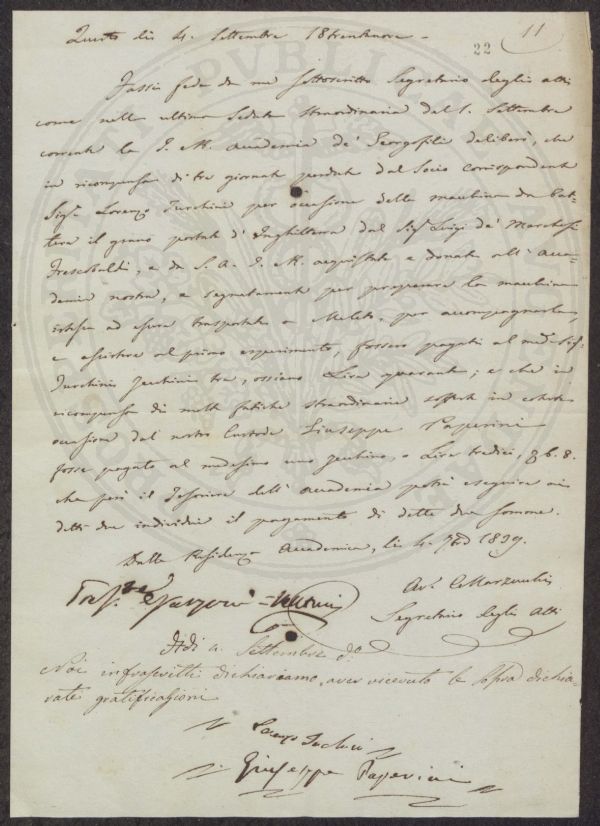 Questo dì 4. Settembre 18trentanove.
22
11
Fassi fede da me sottoscritto Segretario degli atti
come nella ultima Seduta straordinaria del 1. Settembre
corrente la I. R. Accademia de' Georgofili deliberò, che
in ricompensa di tre giornate perdute dal Socio corrispondente
Sigr. Lorenzo Turchini per occasione della macchina da bat-
tere il grano portata d'Inghilterra dal Sigr. Luigi de' Marchesi
Frescobaldi, e da S. A. I. R. acquistata e donata all'Acca-
demia nostra, e segnatamente per preparare la macchina
istessa ad essere trasportata a Meleto, per accompagnarla,
e assistere al primo esperimento, fossero pagati al med. Sigr.
Turchini zecchini tre, ossiano Lire quaranta; e che in
ricompensa di molte fatiche straordinarie sofferte in cotesta
occasione dal nostro Custode Giuseppe Paperini
fosse pagato al medesimo uno zecchino, o Lire tredici, 6. 8.
che però il Tesoriere dell'Accademia potrà eseguire ai
detti due individui il pagamento di dette due somme.
Dalla Residenza Accademica, lì 4. 7bre 1839.
Segretario degli Atti
Adi 4. Settembre do.
Noi infrascritti dichiariamo aver ricevuto le sopra dichia-
rate gratificazioni
Lorenzo Turchini
Giuseppe Paperini